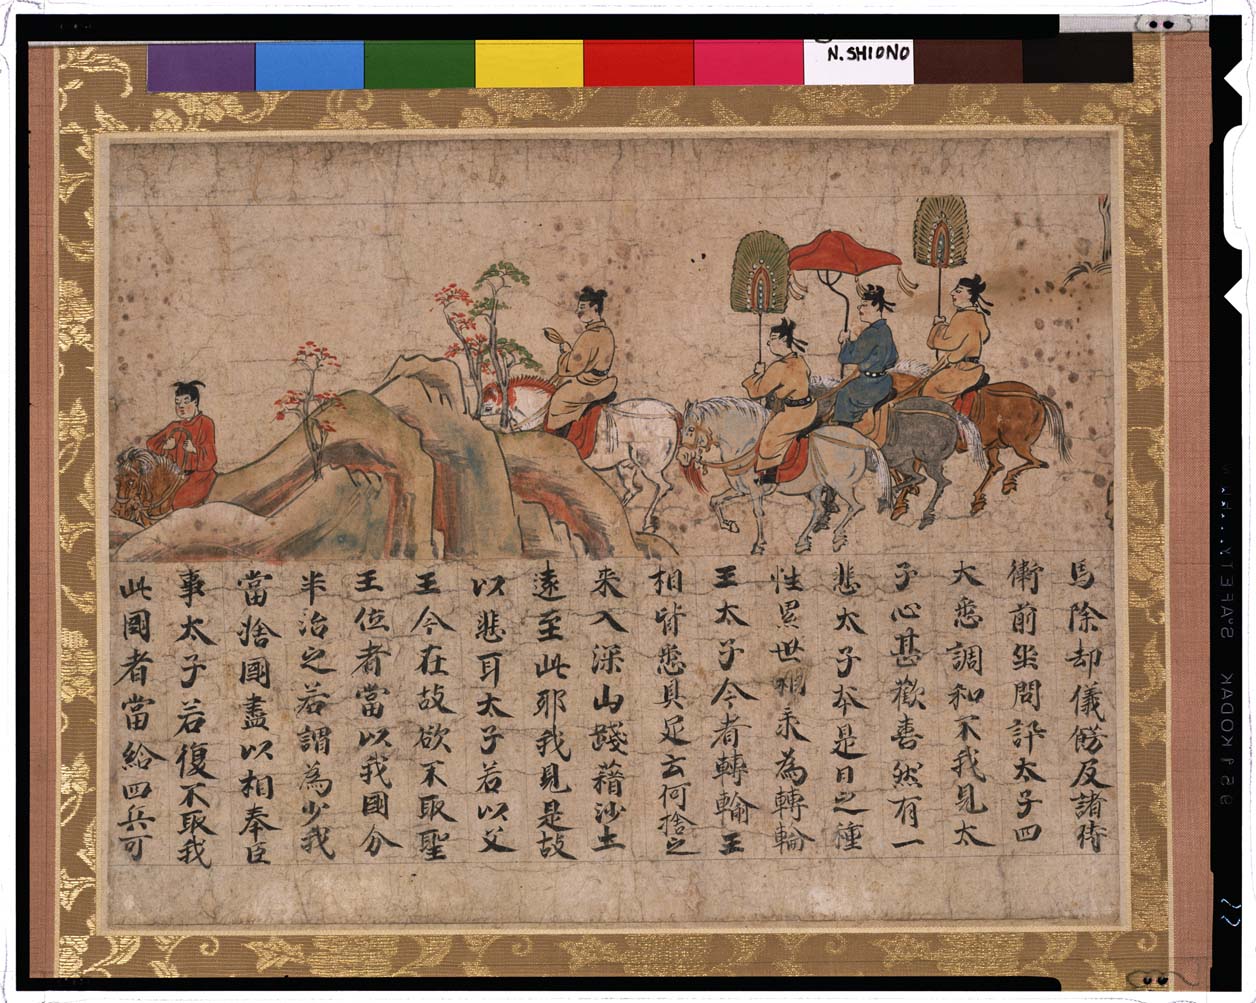 N. SHIONO
馬除却儀飾及諸侍
衛前坐問訊太子四
大悉調和不我見太
子心甚歡喜然有一
悲太子本是日之種
性累世相承為轉輪
王太子今者轉輪王
相皆悉具足云何捨之
来入深山踐藉沙土
遠至此耶我見是故
以悲耳太子若以父
王今在故欲不取聖
王位者當以我國分
半治之若謂為少我
當捨國盡以相奉臣
事太子若復不取我
此國者當給四兵可
KODAK
SAFETY